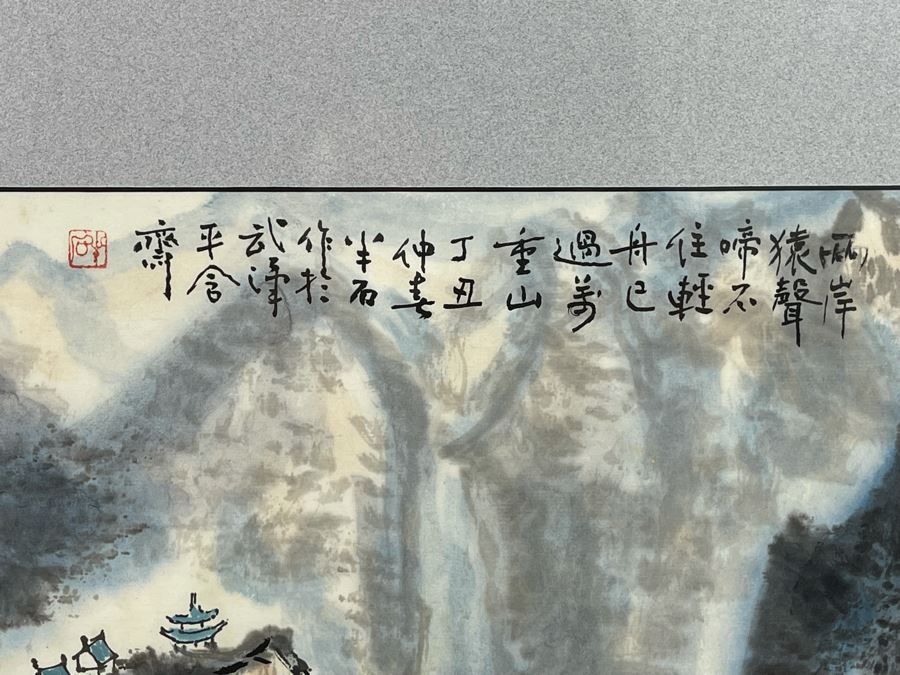 兩岸
猿聲
啼不
住輕
舟已
過萬
重山
丁丑
仲春
半石
作於
武漢
平含
齋